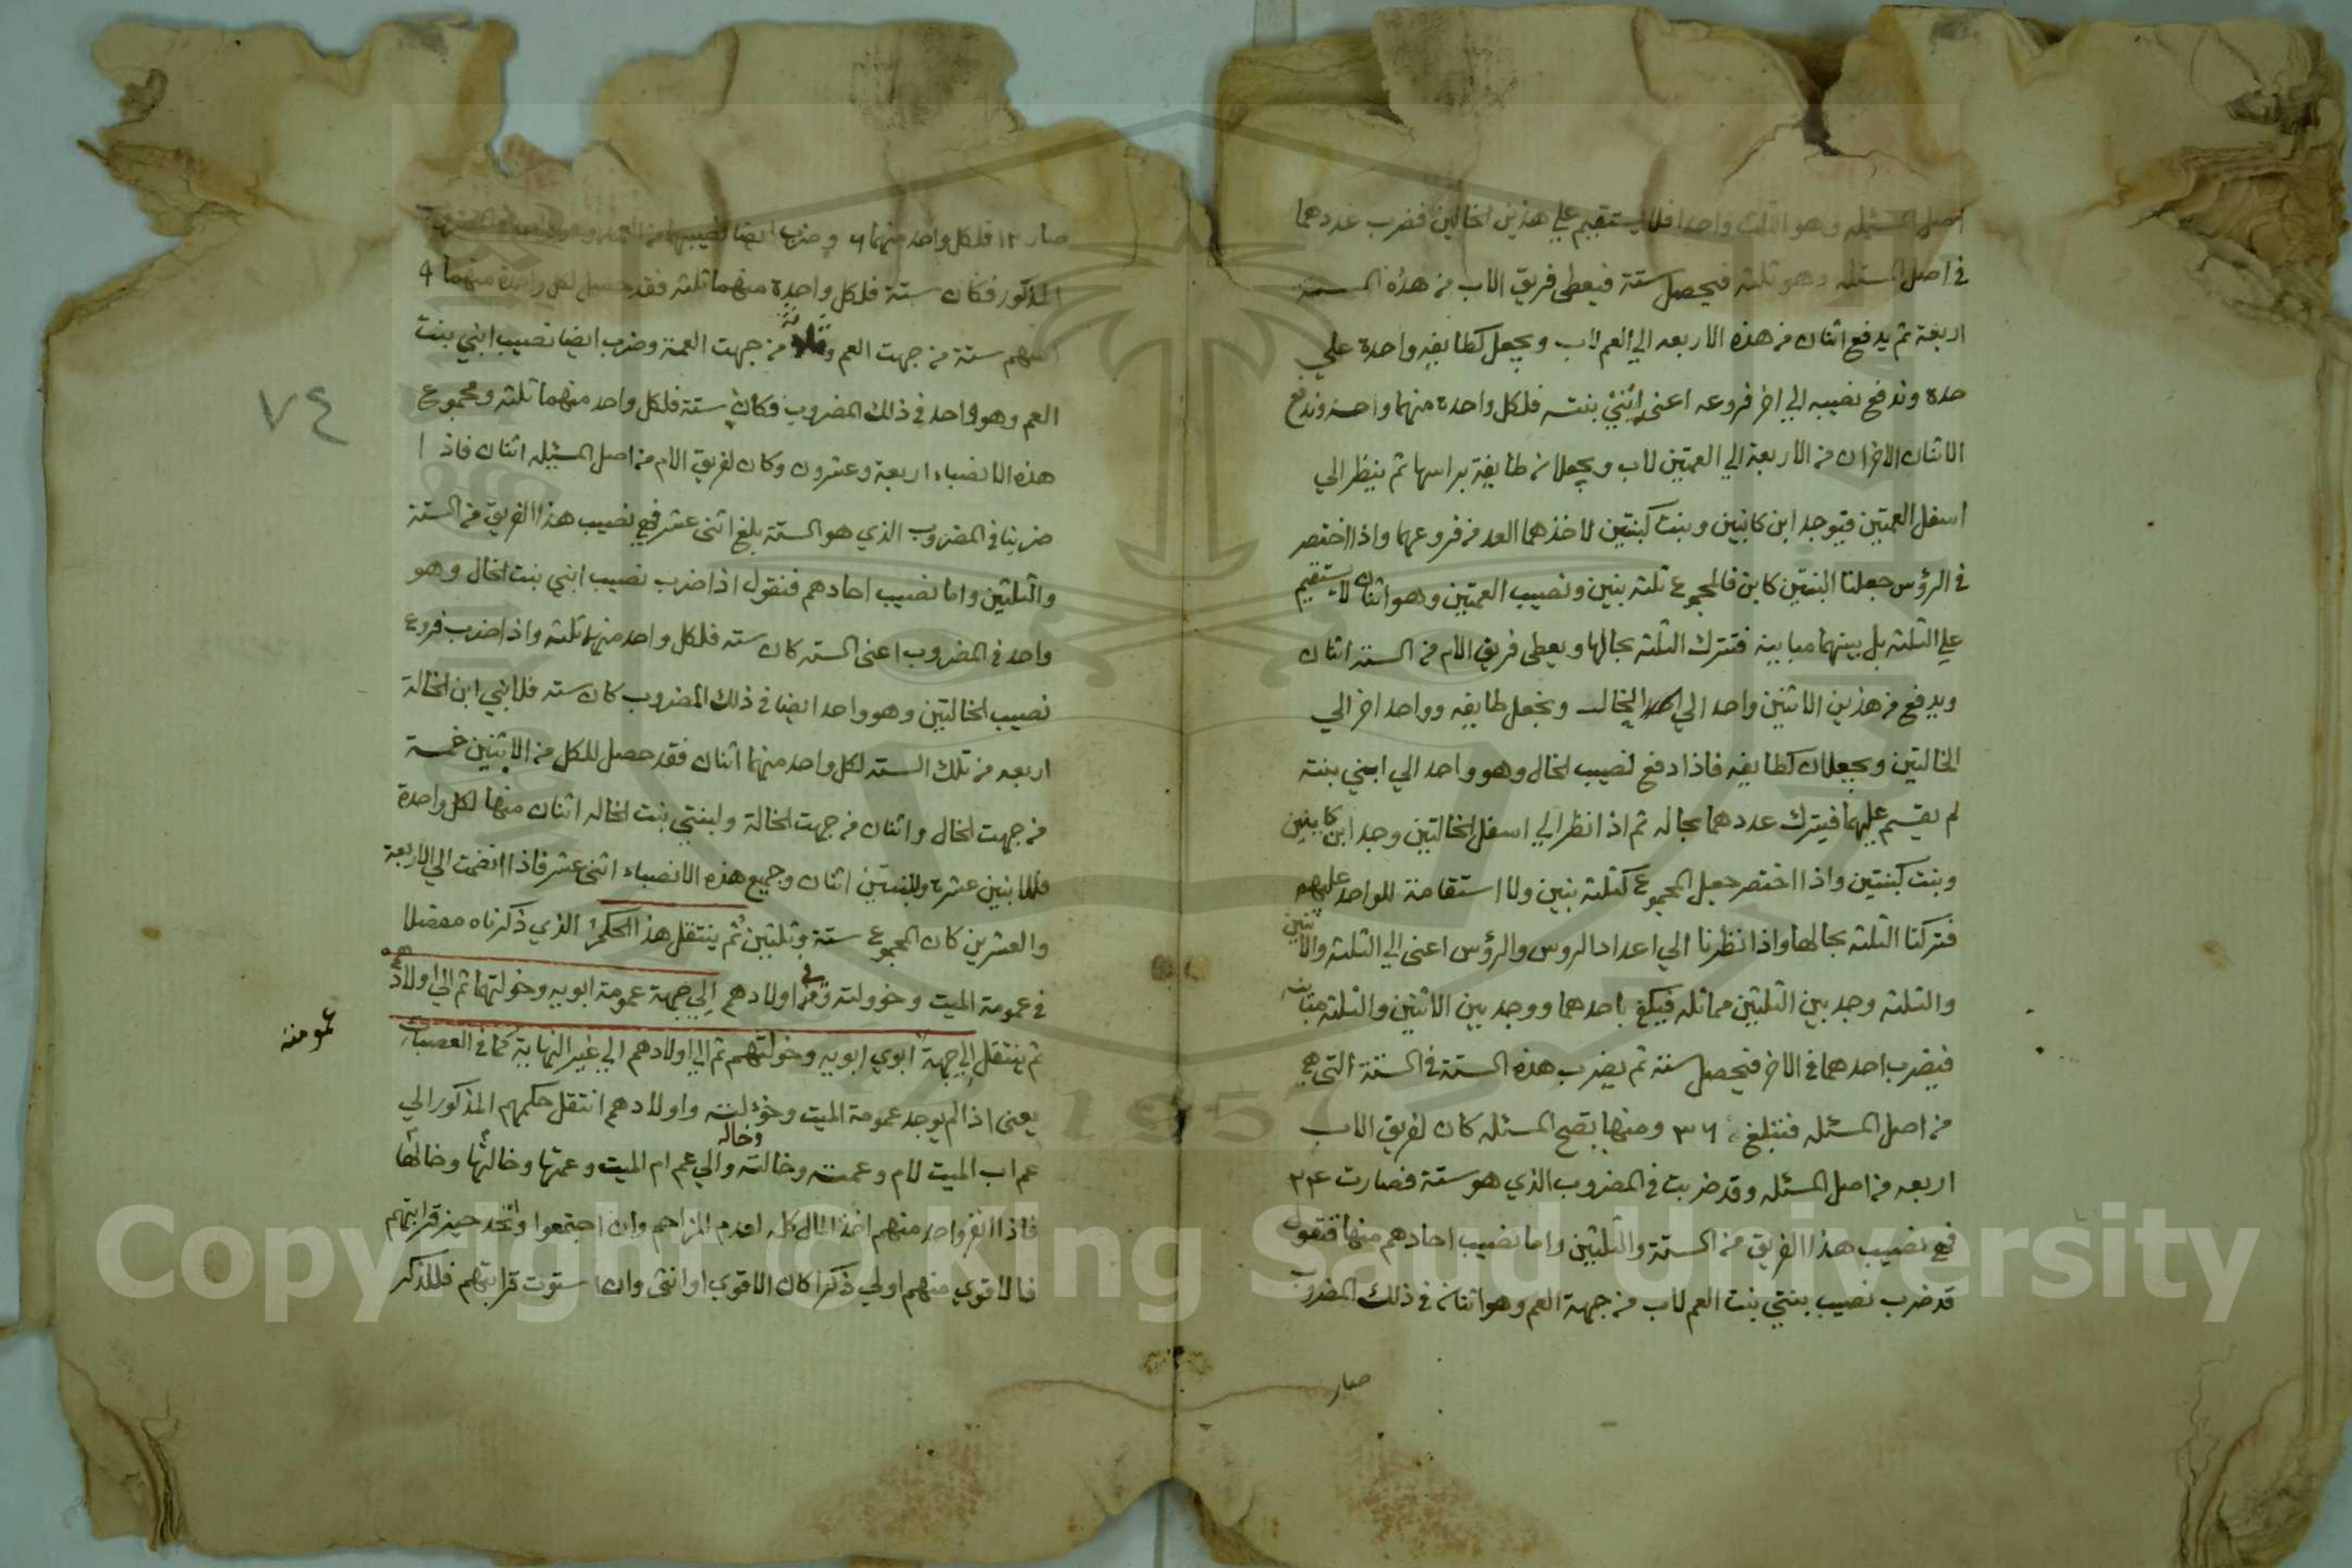 اصل المسئله وهو الثلث واحدا فلا يستقيم علي هذين الخالين فضرب عددهما
في اصل المسئله وهو ثلثه فيحصل ستة فيعطى فريق الاب من هذه الستة
اربعة ثم يدفع اثنان من هذه الاربعه الي العم لاب ويجعل كطايفه واحدة علي
حدة وندفع نصيبه الي اخر فروعه اعني ابنتي بنته فلكل واحدة منهما واحد وندفع
الاثنان الاخران من الاربعة الي العمتين لاب ويجعلان طايفة براسها ثم ينظر الي
اسفل العمتين فيوجد ابن كابنين وبنت كبنتين لاخذهما العدد من فروعهما واذا اختصر
في الرؤس جعلنا البنتين كابن فالمجموع ثلثه بنين ونصيب العمتين وهو اثنان لا يستقيم
علي الثلثه بل بينهما مباينه فتترك الثلثه بحالها ويعطى فريق الام من الستة اثنان
ويدفع من هذين الاثنين واحد الي الخال ويجعل طايفه وواحد اخر الي
الخالتين ويجعلان كطايفه فاذا دفع نصيب الخال وهو واحد الي ابني بنته
لم يقسم عليهما فيترك عددهما بحاله ثم اذا نظر الي اسفل الخالتين وجد ابن كابنين
وبنت كبنتين واذا اختصر جعل المجموع كثلثه بنين ولا استقامة للواحد عليهم
فتركنا الثلثه بحالها واذا نظرنا الي اعداد الروس والرؤس اعني الي الثلثه والاثنين
والثلثه وجد بين الثلثين مماثله فيكفي باحدهما ووجد بين الاثنين والثلثه مباينه
فيضرب احدهما في الاخر فيحصل ستة ثم يضرب هذه الستة في الستة التي هي
من اصل المسئله فتبلغ ٣٦ ومنها يصح المسئله كان لفريق الاب
اربعه من اصل المسئله وقد ضربت في المضروب الذي هو ستة فصارت ٢٤
فهي نصيب هذا الفريق من الستة والثلثين واما نصيب احادهم منها فنقول
قد ضرب نصيب بنتي بنت العم لاب من جهة العم وهو اثنان في ذلك المضروب
صار
صار ١٢ فلكل واحد منهما ٦ وضرب ايضا نصيبهما من
المذكور فكان ستة فلكل واحدة منهما ثلثه فقد حصل لكل واحدة منهما ٩
اسهم ستة من جهت العم وثلاثة من جهت العمة وضرب ايضا نصيب ابني بنت
العم وهو واحد في ذلك المضروب فكان ستة فلكل واحد منهما ثلثه ومجموع
هذه الانصباء اربعة وعشرون وكان لفريق الام من اصل المسئله اثنان فاذا
ضربنا في المضروب الذي هو الستة بلغ اثنى عشر فهي نصيب هذا الفريق من الستة
والثلثين واما نصيب احادهم فنقول اذا ضرب نصيب ابني بنت الخال وهو
واحد في المضروب اعني الستة كان سته فلكل واحد منهما ثلثه واذا ضرب فروع
نصيب الخالتين وهو واحد ايضا في ذلك المضروب كان سته فلابني ابن الخالة
اربعه من تلك السته لكل واحد منهما اثنان فقد حصل للكل من الابنين خمسة
من جهت الخال واثنان من جهت الخالة ولبنتي بنت الخاله اثنان منها لكل واحدة
فللابنين عشرة وللبنتين اثنان وجميع هذه الانصباء اثنى عشر فاذا انضمت الي الاربعة
والعشرين كان المجموع ستة وثلثين ثم ينتقل هذا الحكم الذي ذكرناه مفصلا
في عمومة الميت وخوولته وفي اولادهم الي جهة عمومة ابويه وخولتهما ثم الي اولادهم
ثم ينتقل الي جهة ابوي ابويه وخولتهم ثم الي اولادهم الي غير النهاية كما في العصبات
عمومة
يعني اذا لم يوجد عمومة الميت وخؤلته واولادهم انتقل حكمهم المذكور الي
عم اب الميت لام وعمته وخالته وخاله والي عم ام الميت وعمتها وخالتها وخالها
فاذا انفرد واحد منهم اخذ المال كله لعدم المزاحم وان اجتمعوا واتحد حيز قرابتهم
فالاقوي منهم اولي ذكرا كان الاقوي او انثى وان استوت قرابتهم فللذكر
٧٤
1957
Copyright © King Saud University